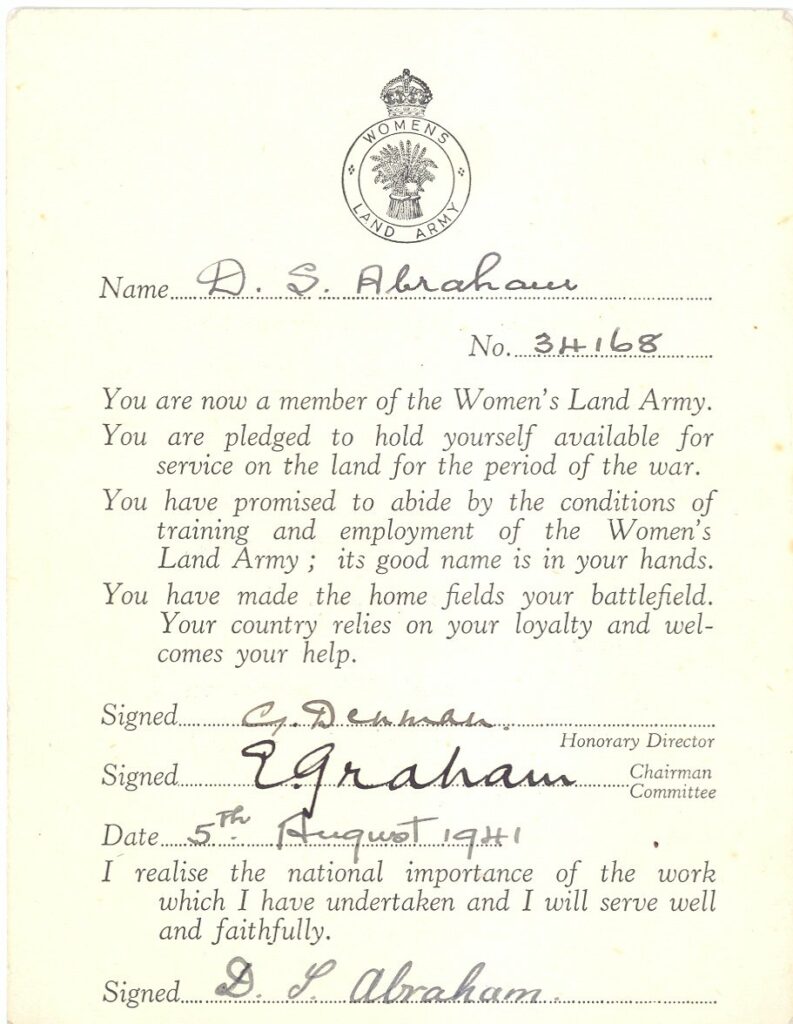 WOMENS
LAND ARMY
Name D. S. Abraham
No. 34168
You are now a member of the Women's Land Army.
You are pledged to hold yourself available for
service on the land for the period of the war.
You have promised to abide by the conditions of
training and employment of the Women's
Land Army ; its good name is in your hands.
You have made the home fields your battlefield.
Your country relies on your loyalty and wel-
comes your help.
Signed G. Denman.
Honorary Director
Signed E. Graham Chairman
Committee
Date 5th. August 1941
I realise the national importance of the work
which I have undertaken and I will serve well
and faithfully.
Signed D. S. Abraham.